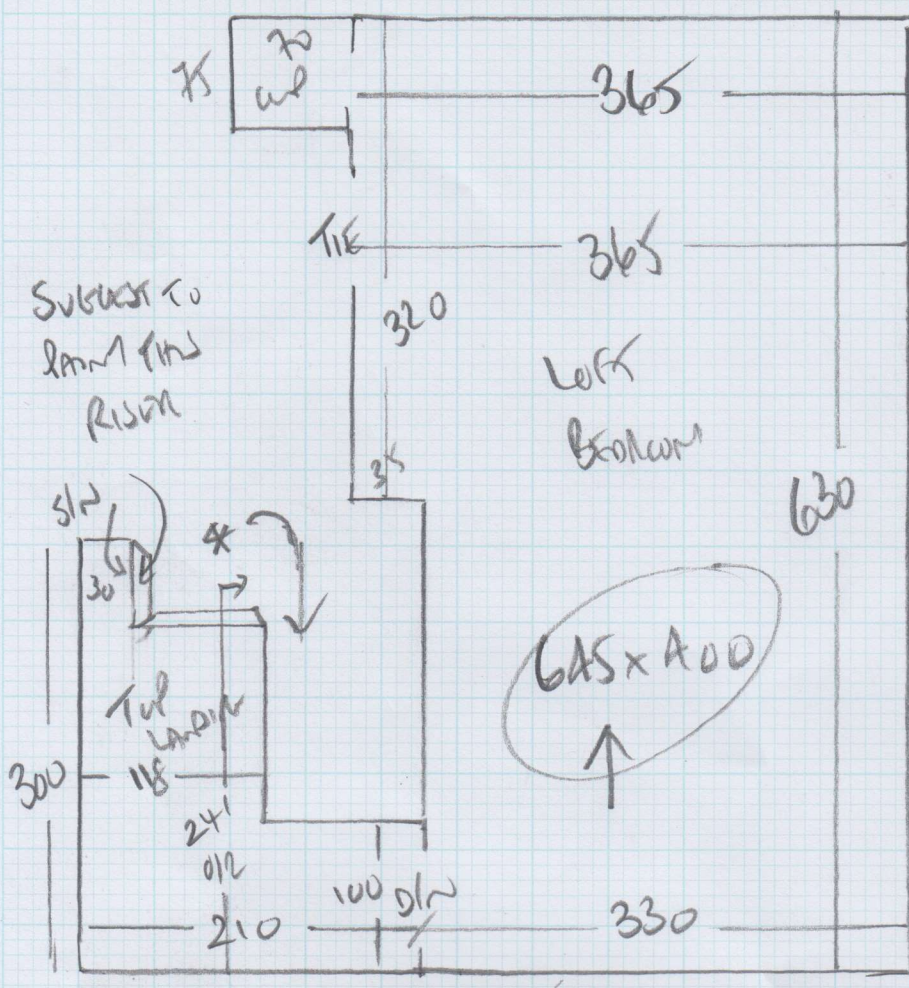 70
75
365
TIE
365
320
SUGGEST TO
PAINT THIS
RISER
LOFT
BEDROOM
35
630
S/N
*
30
6A5 x A00
TOP
LANDIN
300
118
241
100
D/N
210
330